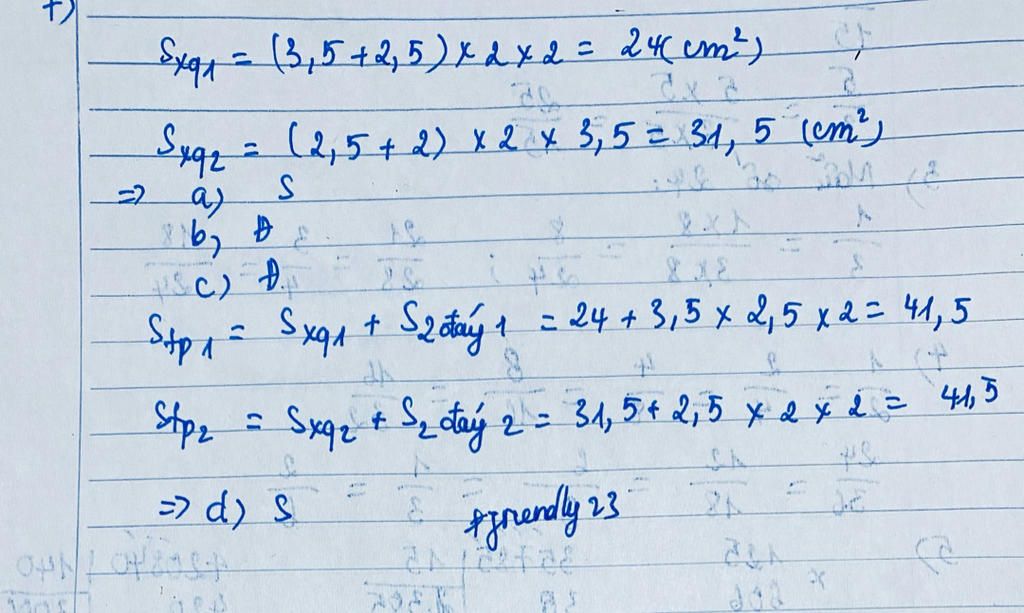 f)
Sxq1 = (3,5 + 2,5) x 2 x 2 = 24 (cm²)
Sxq2 = (2,5 + 2) x 2 x 3,5 = 31,5 (cm²)
=> a) S
b) Đ
c) Đ.
Stp1 = Sxq1 + S2đáy 1 = 24 + 3,5 x 2,5 x 2 = 41,5
Stp2 = Sxq2 + S2 đáy 2 = 31,5 + 2,5 x 2 x 2 = 41,5
=> d) S